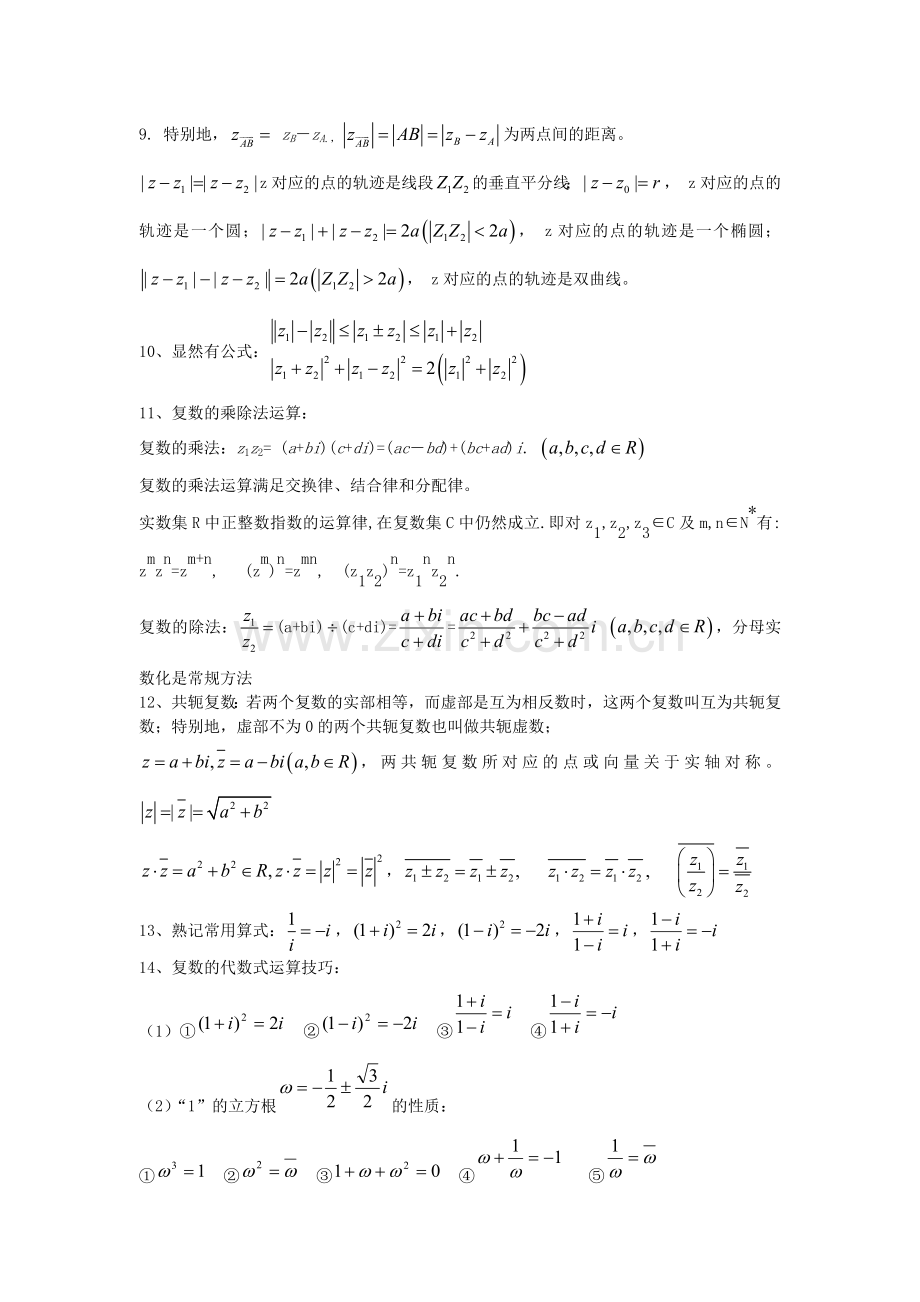 9. 特别地，z_{\overline{AB}} = z_B－z_A., |z_{\overline{AB}}| = |AB| = |z_B − z_A| 为两点间的距离。
|z − z₁|=|z − z₂| z 对应的点的轨迹是线段 Z₁Z₂ 的垂直平分线；|z − z₀|= r， z 对应的点的
轨迹是一个圆；|z − z₁|+|z − z₂|= 2a(|Z₁Z₂| < 2a)， z 对应的点的轨迹是一个椭圆；
||z − z₁|−|z − z₂|| = 2a(|Z₁Z₂| > 2a)， z 对应的点的轨迹是双曲线。
10、显然有公式：
||z₁| − |z₂|| ≤ |z₁ ± z₂| ≤ |z₁| + |z₂|
|z₁ + z₂|² + |z₁ − z₂|² = 2(|z₁|² + |z₂|²)
11、复数的乘除法运算：
复数的乘法：z₁z₂= (a+bi)(c+di)=(ac－bd)+(bc+ad)i. (a,b,c,d ∈ R)
复数的乘法运算满足交换律、结合律和分配律。
实数集 R 中正整数指数的运算律,在复数集 C 中仍然成立.即对 z₁,z₂,z₃∈C 及 m,n∈N*有:
z^m z^n=z^{m+n}, (z^m)^n=z^{mn}, (z₁z₂)^n=z₁^n z₂^n.
复数的除法：\frac{z₁}{z₂} =(a+bi)÷(c+di)=\frac{a+bi}{c+di}=\frac{ac+bd}{c²+d²}+\frac{bc−ad}{c²+d²}i (a,b,c,d ∈ R)，分母实
数化是常规方法
12、共轭复数：若两个复数的实部相等，而虚部是互为相反数时，这两个复数叫互为共轭复
数；特别地，虚部不为 0 的两个共轭复数也叫做共轭虚数；
z = a + bi, \overline{z} = a − bi(a,b ∈ R)，两共轭复数所对应的点或向量关于实轴对称。
|z| =| \overline{z} |= \sqrt{a² + b²}
z·\overline{z} = a² + b² ∈ R, z·\overline{z} = |z|² = |\overline{z}|²，\overline{z₁ ± z₂} = \overline{z₁} ± \overline{z₂}, \overline{z₁·z₂} = \overline{z₁}·\overline{z₂}, \overline{(\frac{z₁}{z₂})} = \frac{\overline{z₁}}{\overline{z₂}}
13、熟记常用算式：\frac{1}{i} = −i，(1+i)² = 2i，(1−i)² = −2i，\frac{1+i}{1−i} = i，\frac{1−i}{1+i} = −i
14、复数的代数式运算技巧：
（1）①(1+i)² = 2i ②(1−i)² = −2i ③\frac{1+i}{1−i} = i ④\frac{1−i}{1+i} = −i
（2）“1”的立方根 ω = −\frac{1}{2} ± \frac{\sqrt{3}}{2}i 的性质：
①ω³ = 1 ②ω² = \overline{ω} ③1 + ω + ω² = 0 ④ω + \frac{1}{ω} = −1 ⑤\frac{1}{ω} = \overline{ω}
www.zixin.com.cn